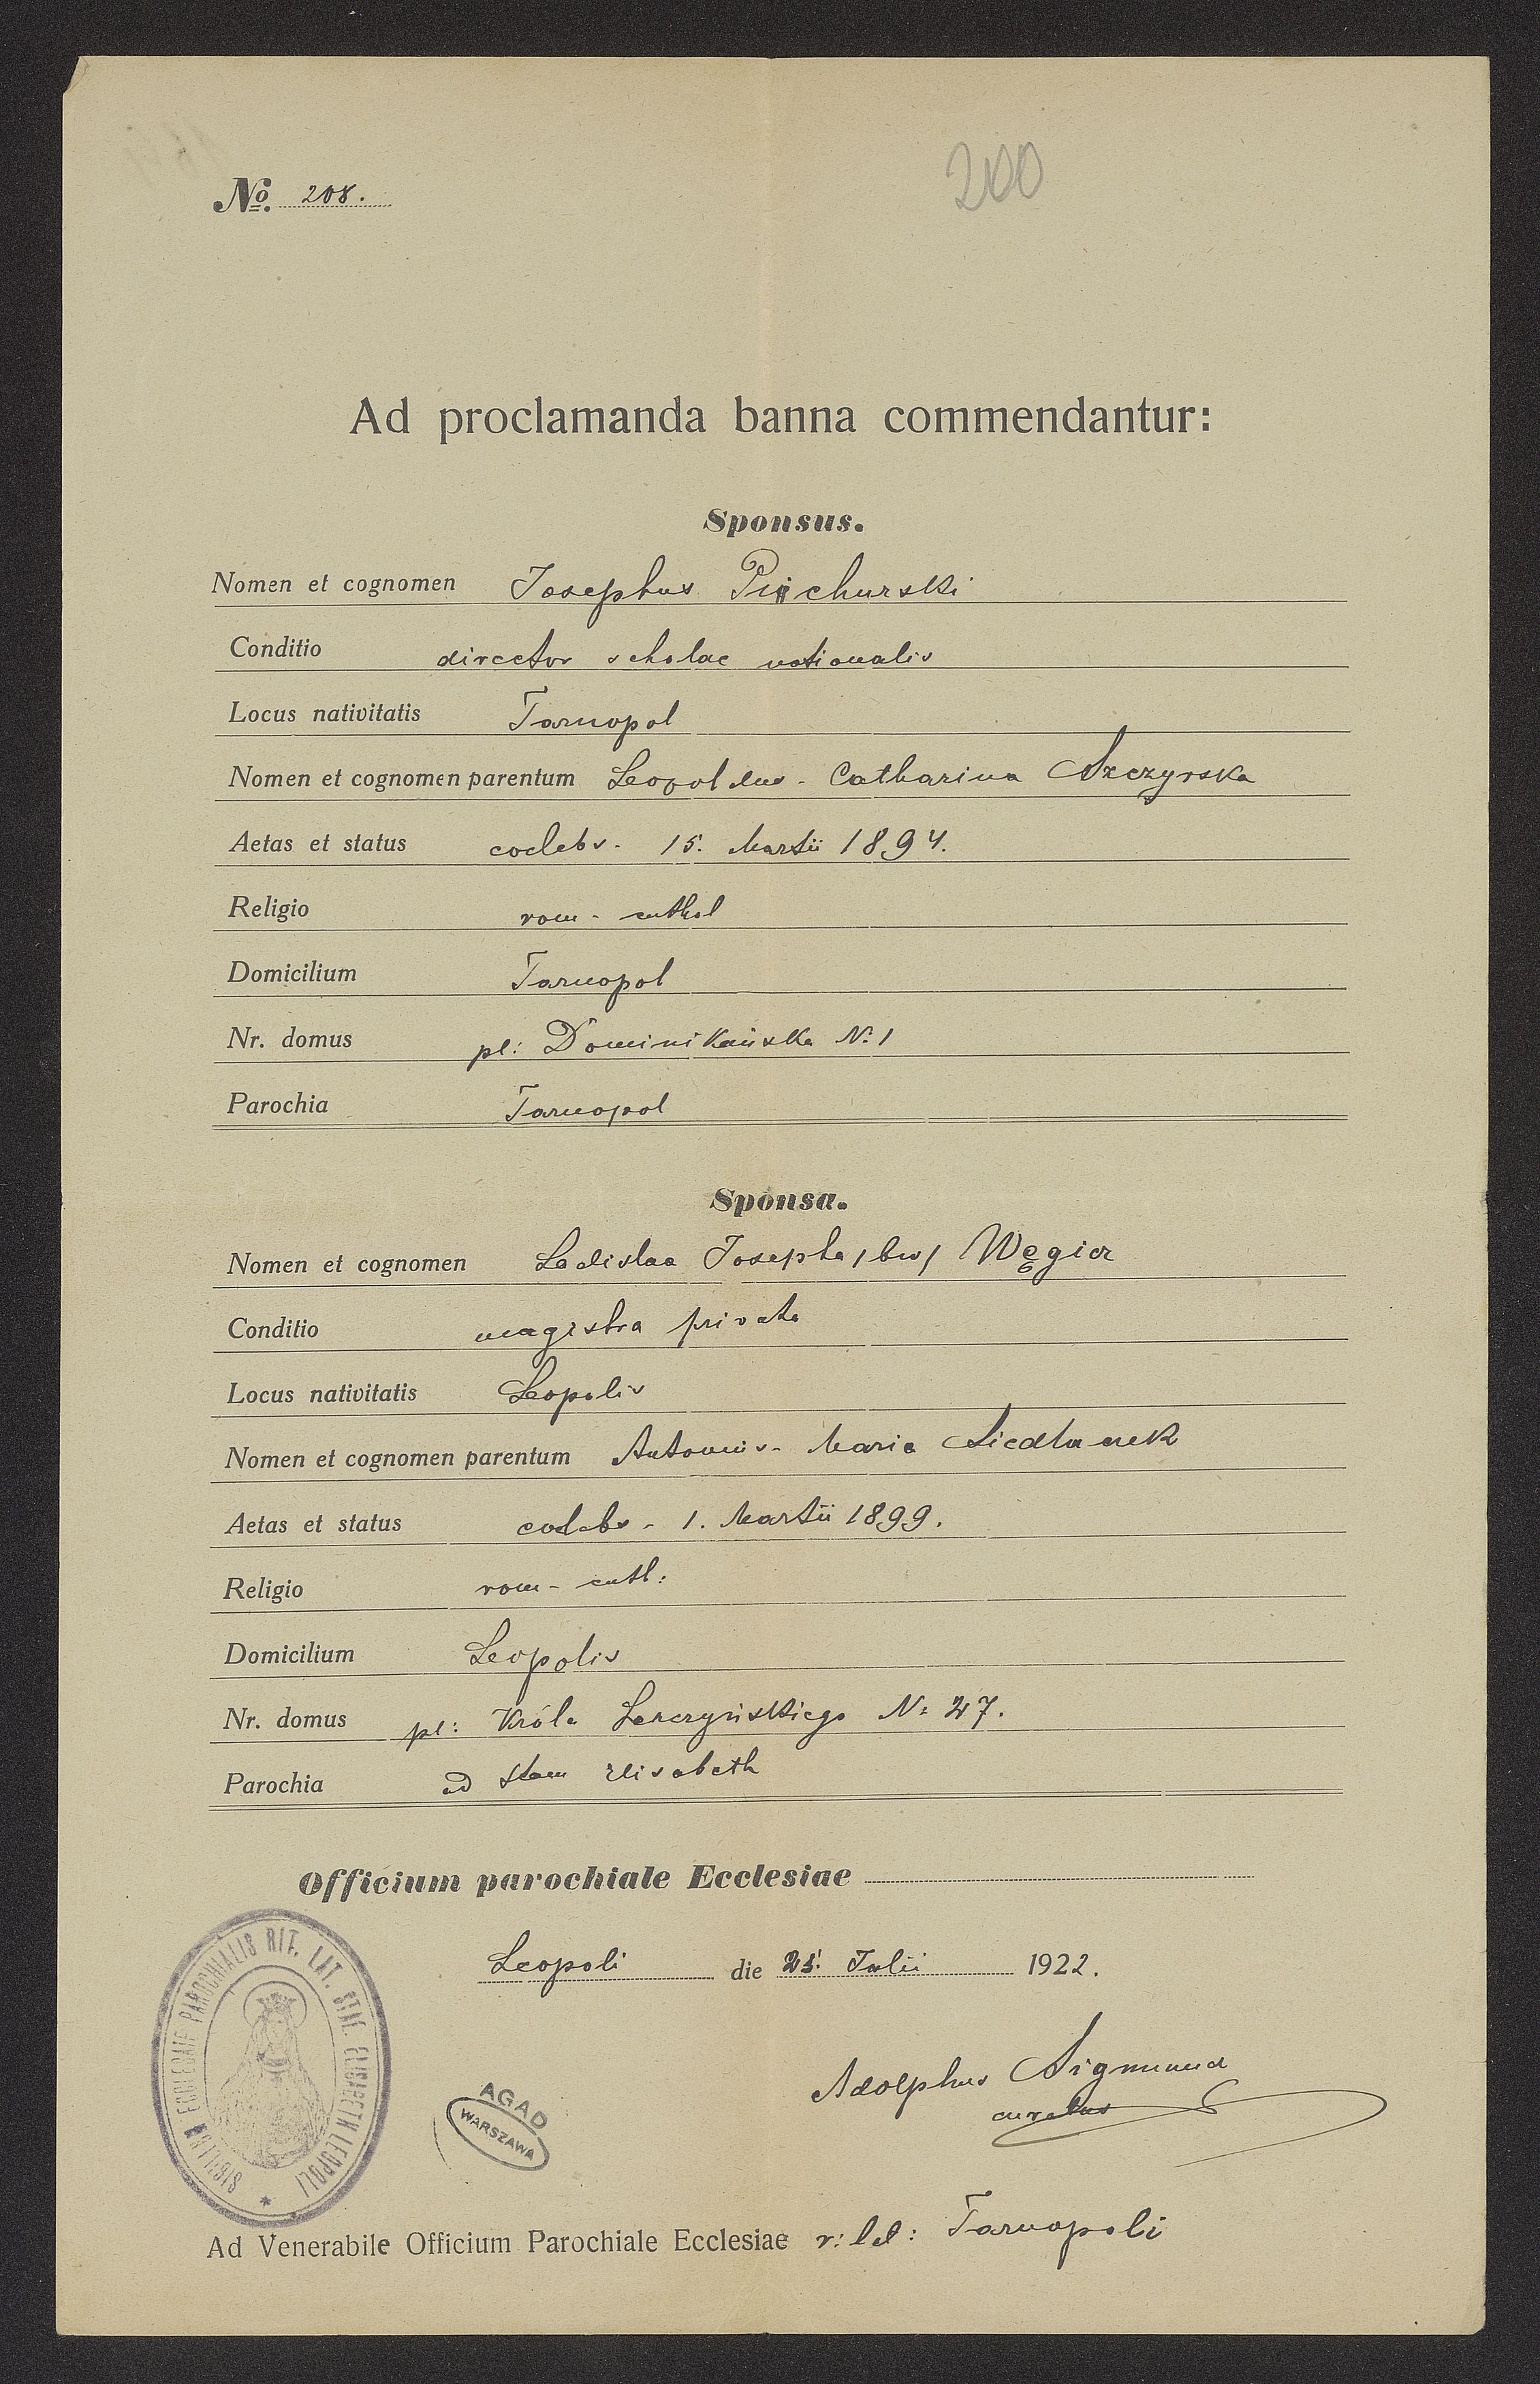 No. 208.
200
Ad proclamanda banna commendantur:
Sponsus.
Nomen et cognomen Josephus Piichurski
Conditio director scholae nationalis
Locus nativitatis Tarnopol
Nomen et cognomen parentum Leopoldus - Catharina Szczyrska
Aetas et status coelebs - 15. Martii 1894.
Religio rom - cathol
Domicilium Tarnopol
Nr. domus pl: Dominikańska N: 1
Parochia Tarnopol
Sponsa.
Nomen et cognomen Ladislaa Josepha /bin/ Węgier
Conditio magistra privata
Locus nativitatis Leopolis
Nomen et cognomen parentum Antonius - Maria
Aetas et status coelebs - 1. Martii 1899.
Religio rom - cath:
Domicilium Leopolis
Nr. domus pl: Króla Leszczyńskiego N: 27.
Parochia ad Stam Elisabeth
Officium parochiale Ecclesiae
Leopoli die 25. Julii 1922.
Adolphus Sigmund
curatus
SIGILLUM ECCLESIAE PAROCHIALIS RIT. LAT. STAE. ELISABETH LEOPOLI
AGAD
WARSZAWA
Ad Venerabile Officium Parochiale Ecclesiae r: lat: Tarnopoli